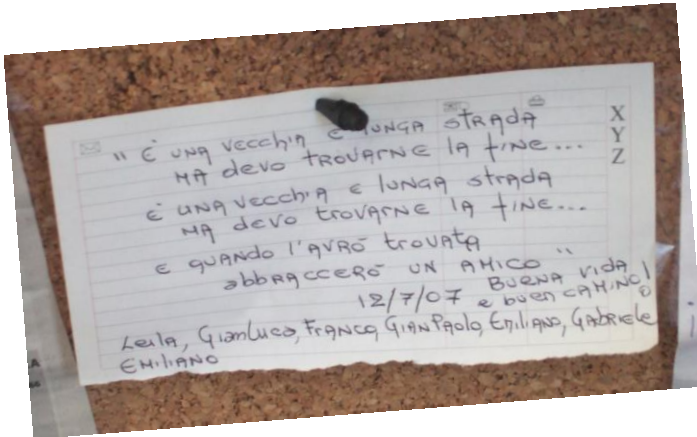 " È UNA VECCHIA E LUNGA STRADA
MA DEVO TROVARNE LA FINE...
È UNA VECCHIA E LUNGA STRADA
MA DEVO TROVARNE LA FINE...
E QUANDO L'AVRÒ TROVATA
ABBRACCERÒ UN AMICO "
BUENA VIDA
12/7/07 e BUEN CAMINO!
Leila, Gianluca, FRANCO, GIANPAOLO, EMILIANO, GABRIELE
EMILIANO
X
Y
Z